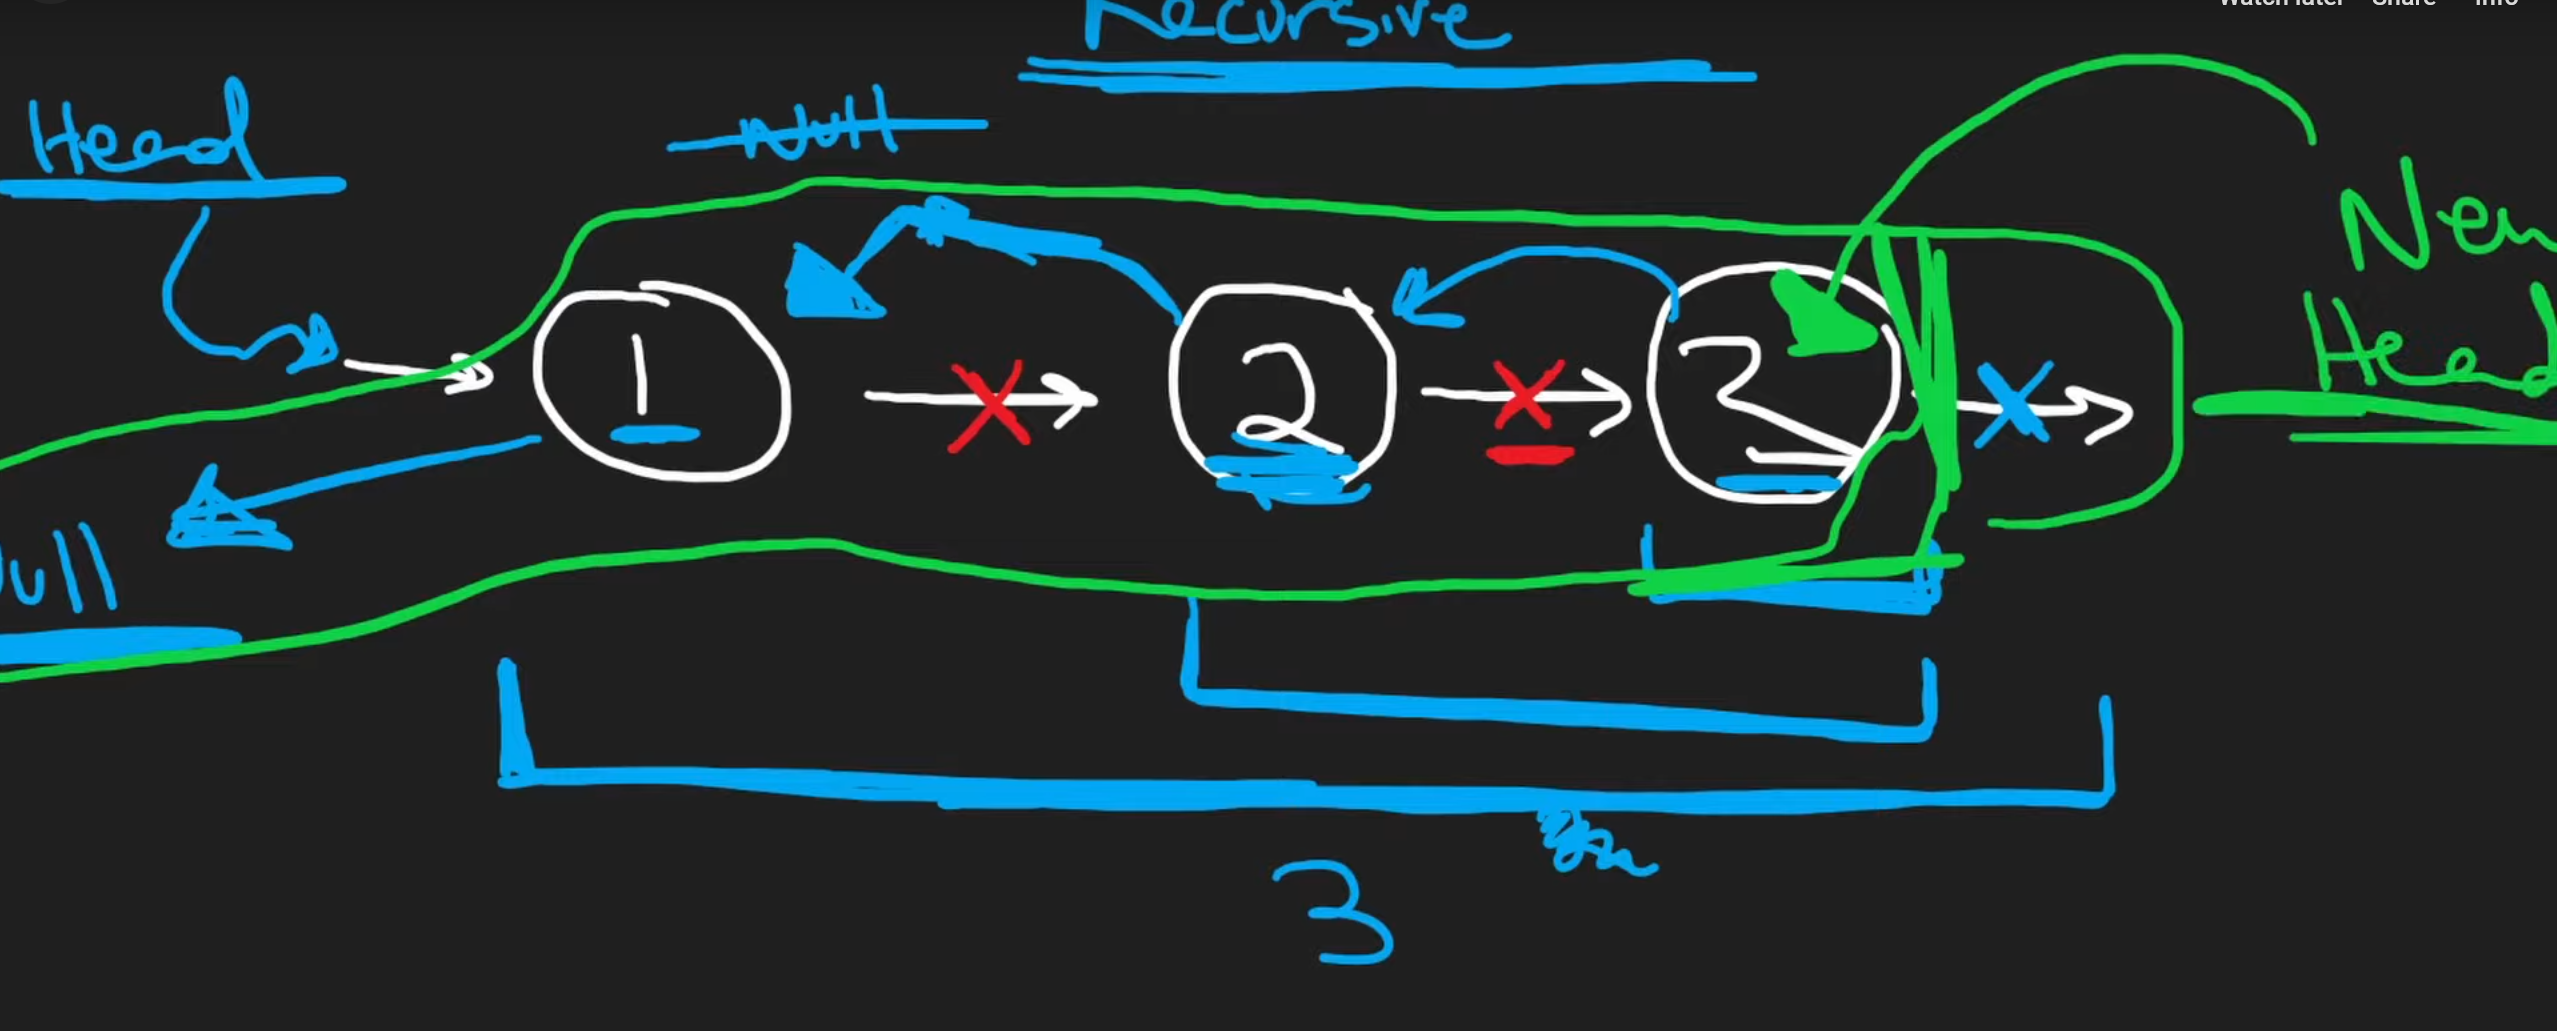 Watch later Share Info
Recursive
Head
Null
New
Head
1
2
3
ull
3